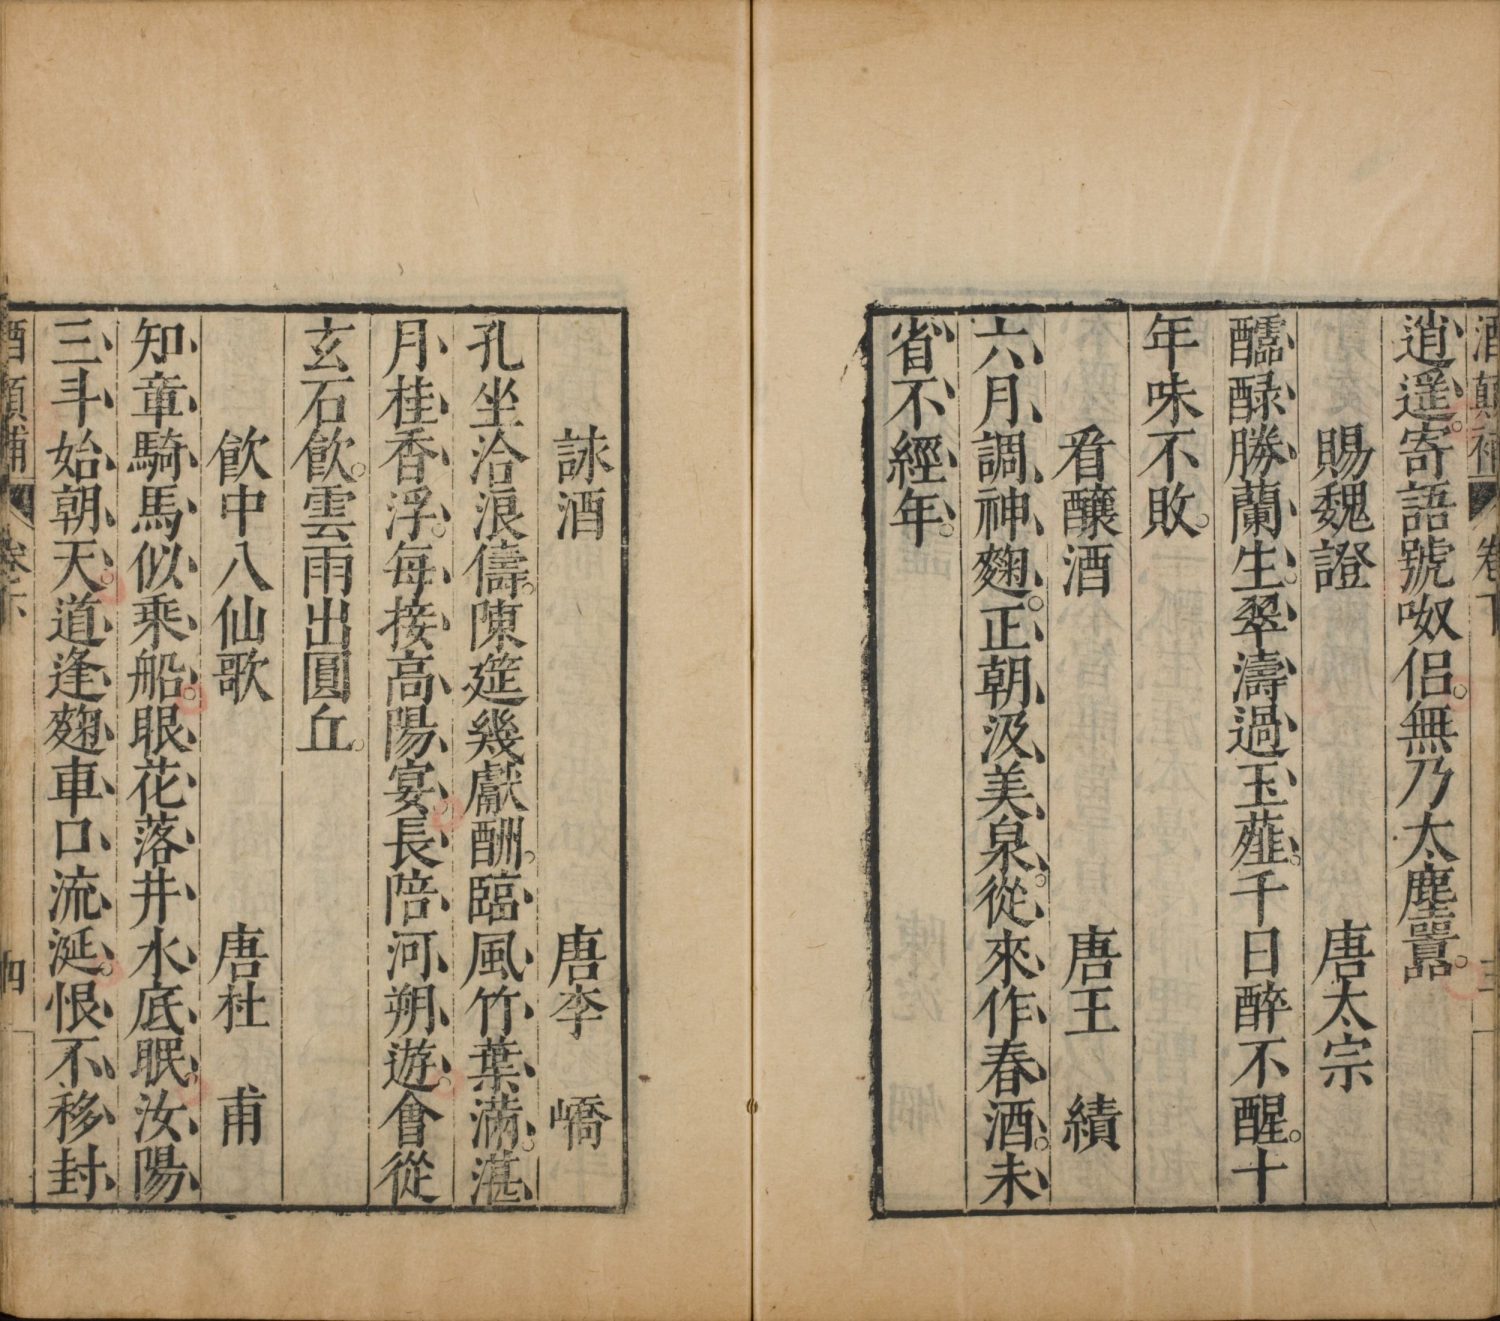 酒顛補 卷下 三
逍遥寄語號呶侶無乃太塵囂
賜魏證 唐太宗
醽醁勝蘭生翠濤過玉薤千日醉不醒十
年味不敗
看釀酒 唐王 績
六月調神麴正朝汲美泉從來作春酒未
省不經年
詠酒 唐李 嶠
孔坐洽浪儔陳筵幾獻酬臨風竹葉滿湛
月桂香浮每接高陽宴長陪河朔遊會從
玄石飲雲雨出圓丘
飲中八仙歌 唐杜 甫
知章騎馬似乘船眼花落井水底眠汝陽
三斗始朝天道逢麴車口流涎恨不移封
酒顛補 卷下 四